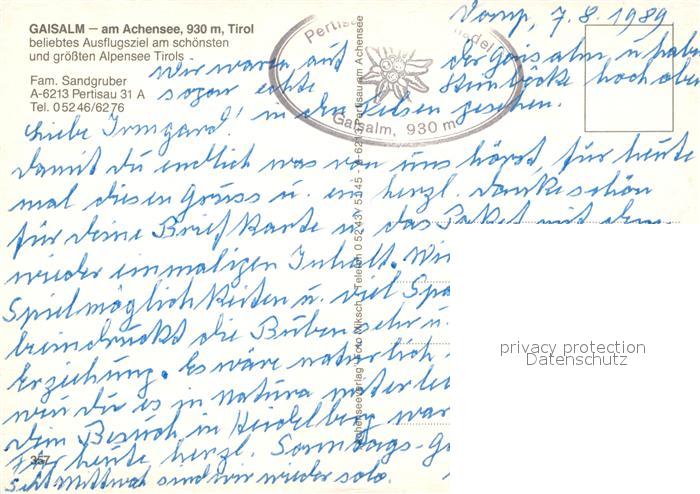 GAISALM – am Achensee, 930 m, Tirol
beliebtes Ausflugsziel am schönsten
und größten Alpensee Tirols
Fam. Sandgruber
A-6213 Pertisau 31 A
Tel. 0 52 46/6276
Pertisau
Gaisalm, 930 m
Vomp, 7.8.1989
Wir waren auf der Gaisalm u. habe
sogar echte Steinböcke hoch oben
in den Felsen gesehen.
Liebe Irmgard!
Damit du endlich was von uns hörst, für heute
mal diesen Gruss u. ein herzl. Dankeschön
für deine Briefkarte u. das Paket mit dem
wieder einmaligen Inhalt. Wir
Spielmöglichkeiten u. viel Spa
beeindruckt die Buben sehr u.
Erziehung. Es wäre natürlich
wenn du es in natura miterle
Dein Besuch in Heidelberg war
Für heute herzl. Sonntags-G
Seit Mittwoch sind wir wieder solo.
367
Achenseeverlag Foto Niksch, Telefon 0 52 43/ 53 45 - A-6213 Pertisau am Achensee
privacy protection
Datenschutz